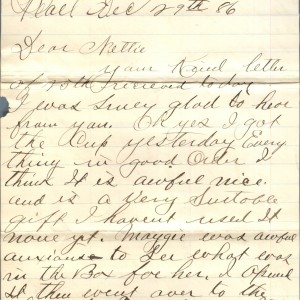 Pearl Dec 29th 86
Dear Nettie
your Kind letter
of 25th received today
I was surey glad to hear
from you. Oh yes I got
the Cup yesterday Every
thing in good Order I
think It is awful nice.
and is a very Suitable
gift I havent used It
none yet. Maggie was awful
auxious to See what was
in the Box for her. I opened
It then went over to the